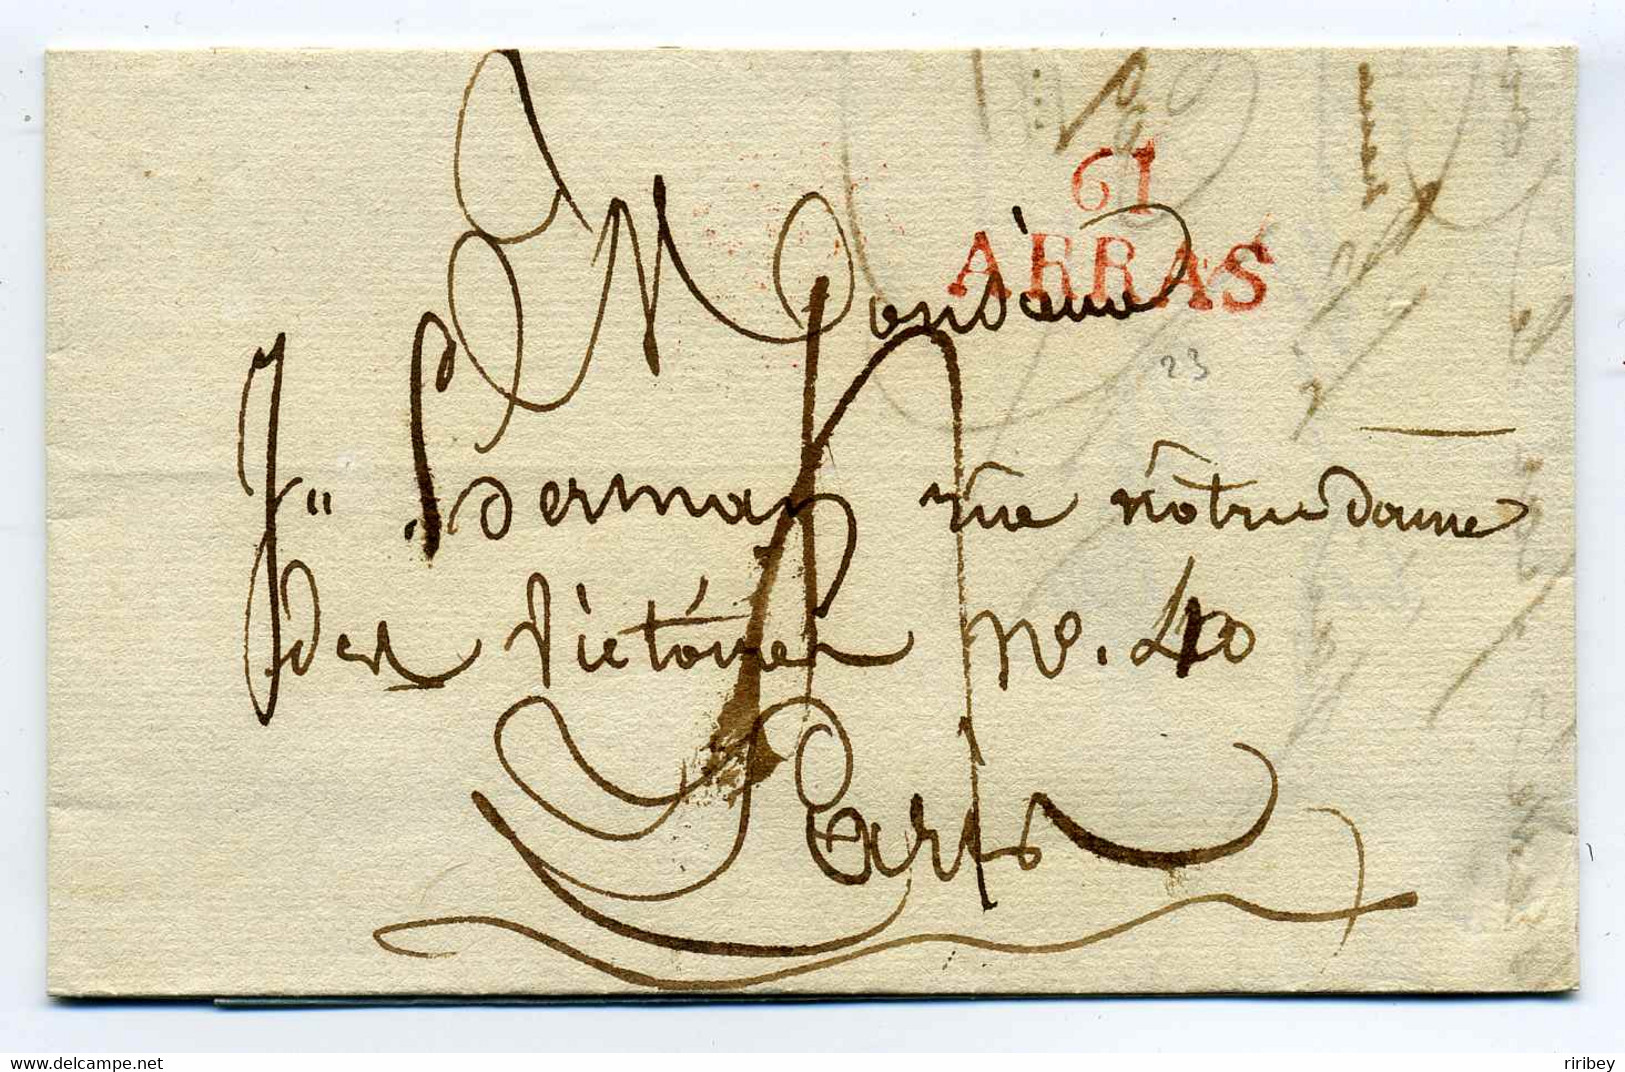 61
ARRAS
Monsieur
23
Jn. Herman rüe nôtre dame
des Victoires No. 40
Paris
www.delcampe.net
riribey